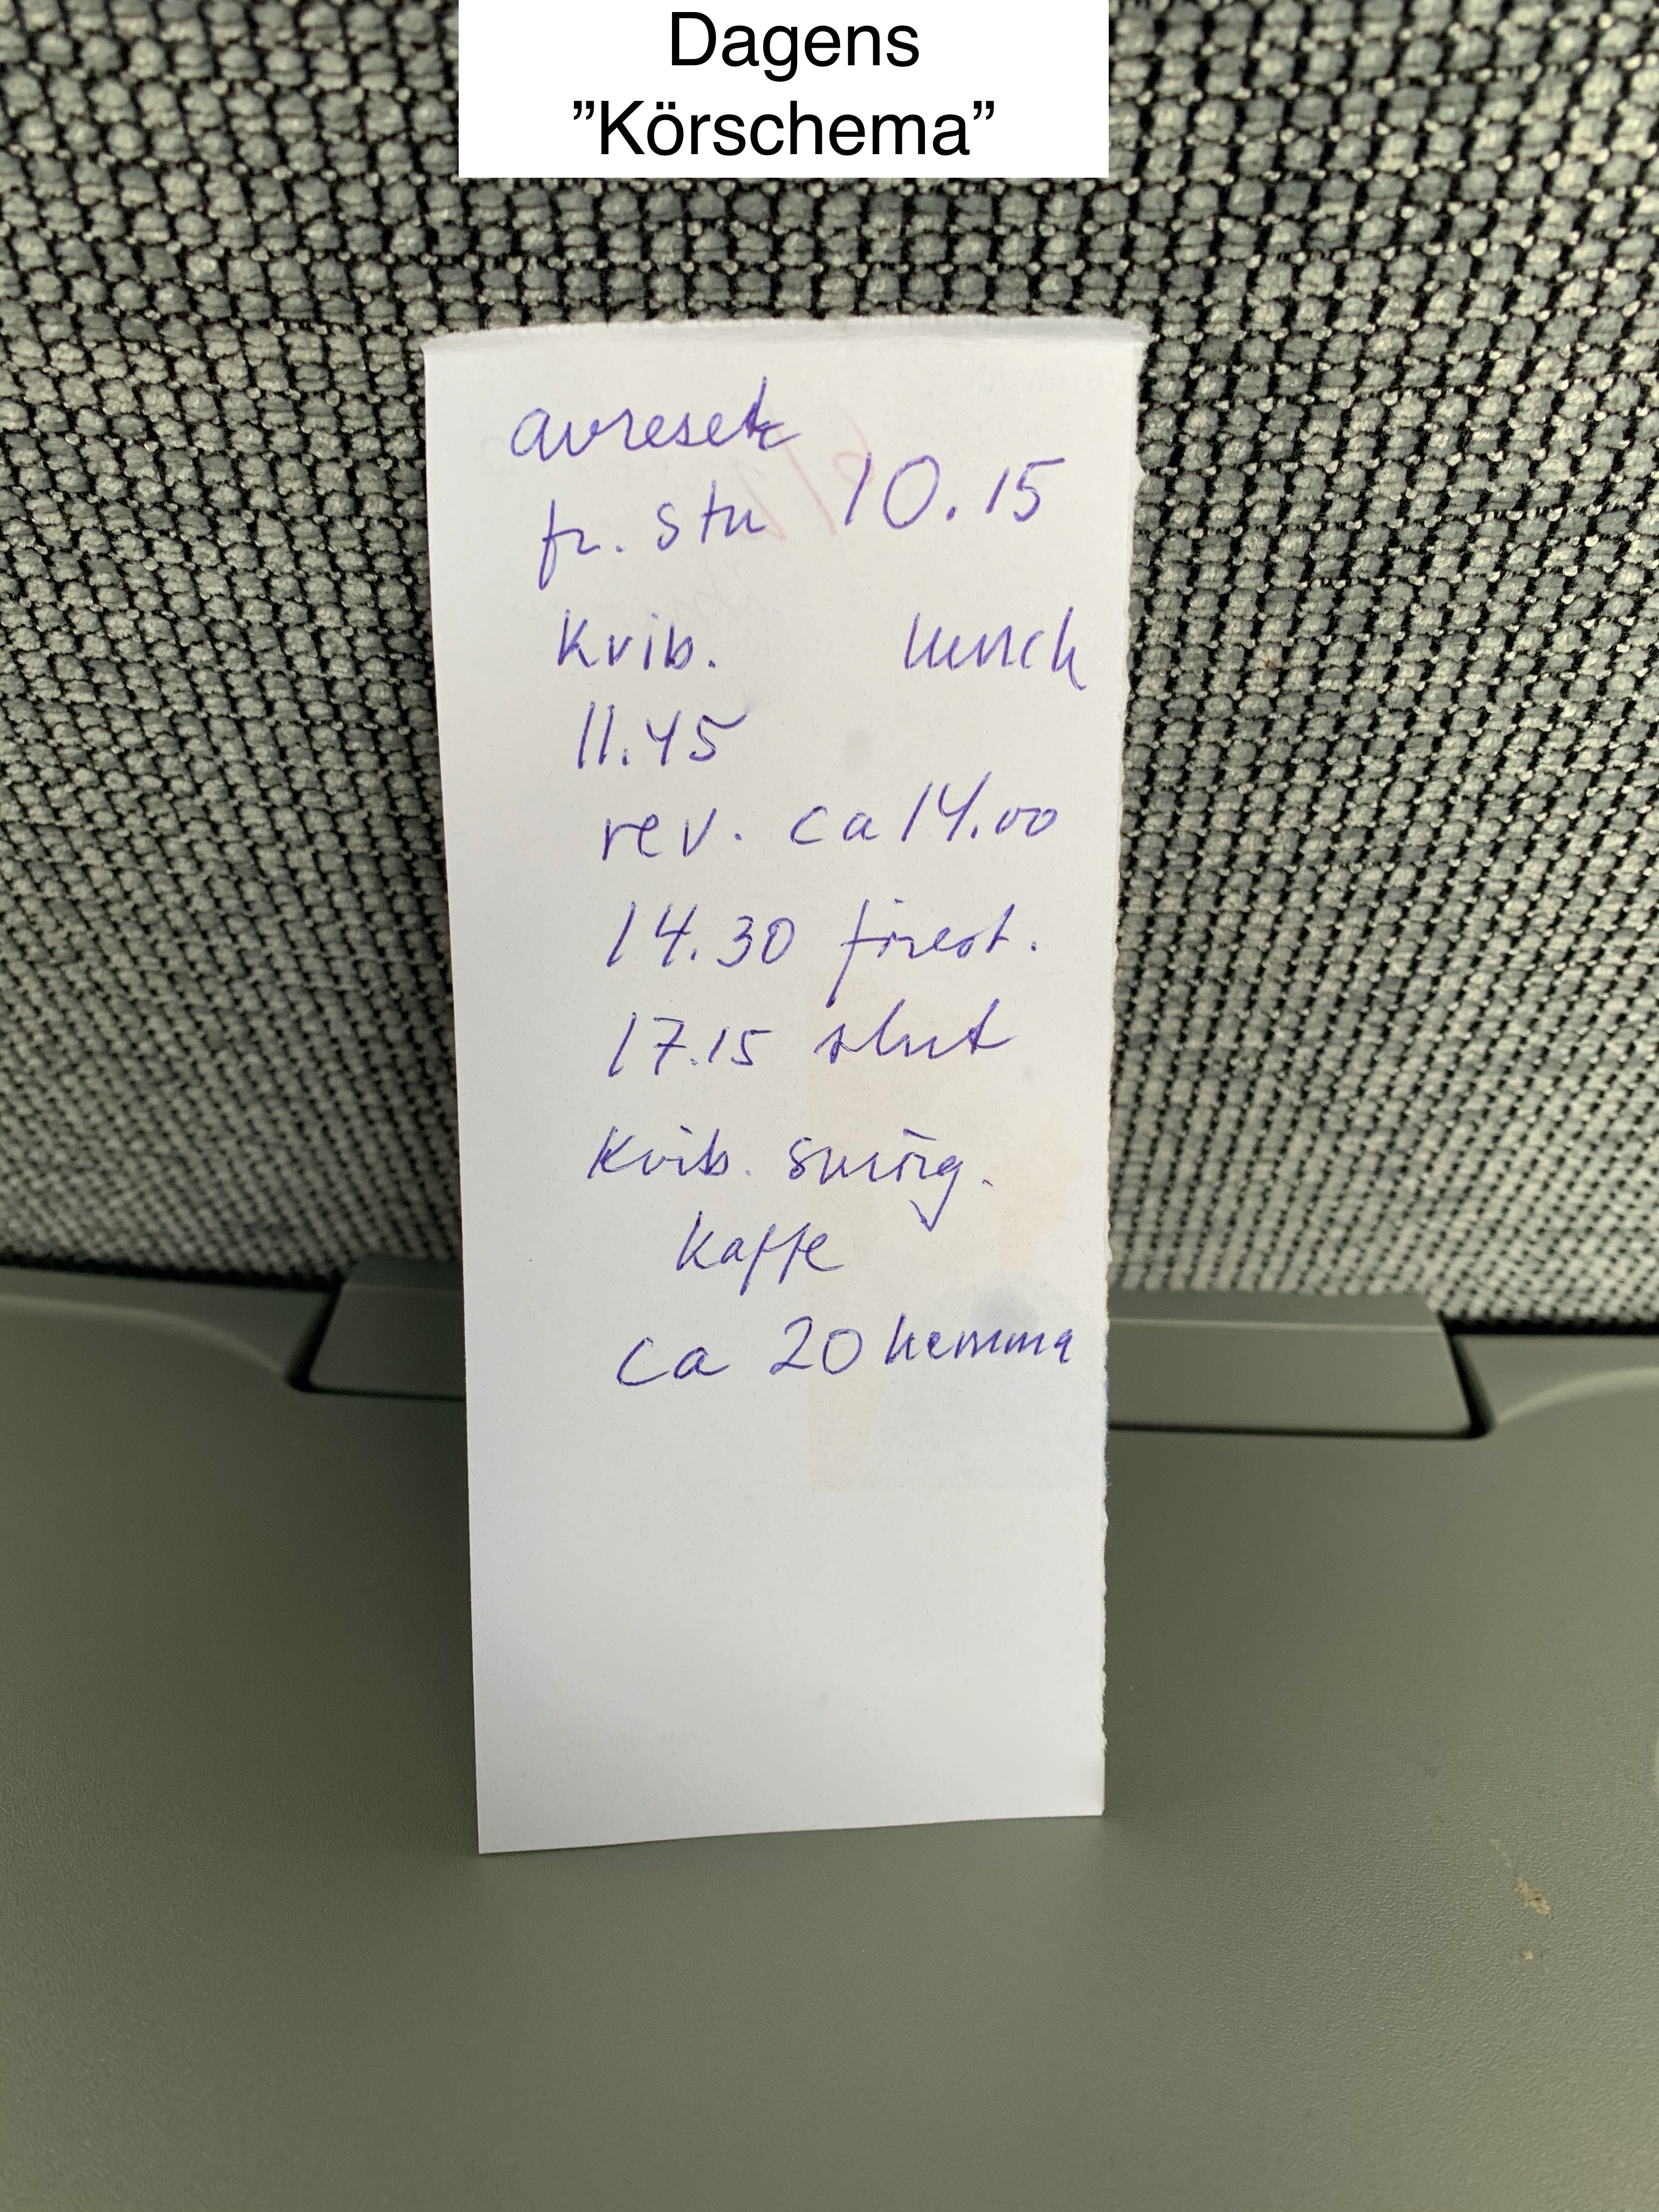 Dagens
”Körschema”
avresek
fr. stn 10.15
Kvib. lunch
11.45
rev. ca 14.00
14.30 först.
17.15 slut
Kvib. smörg.
kaffe
ca 20 hemma